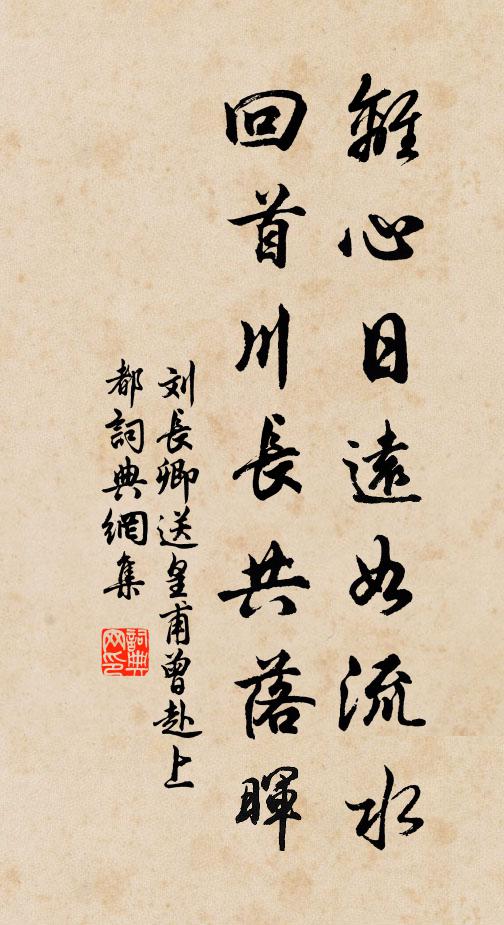 離心日遠如流水
回首川長共落暉
刘長卿送皇甫曾赴上
都詞典網集
詞典
网印